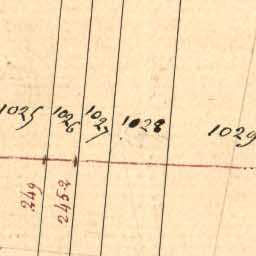 1025 1026 1027 1028 1029
249 2452